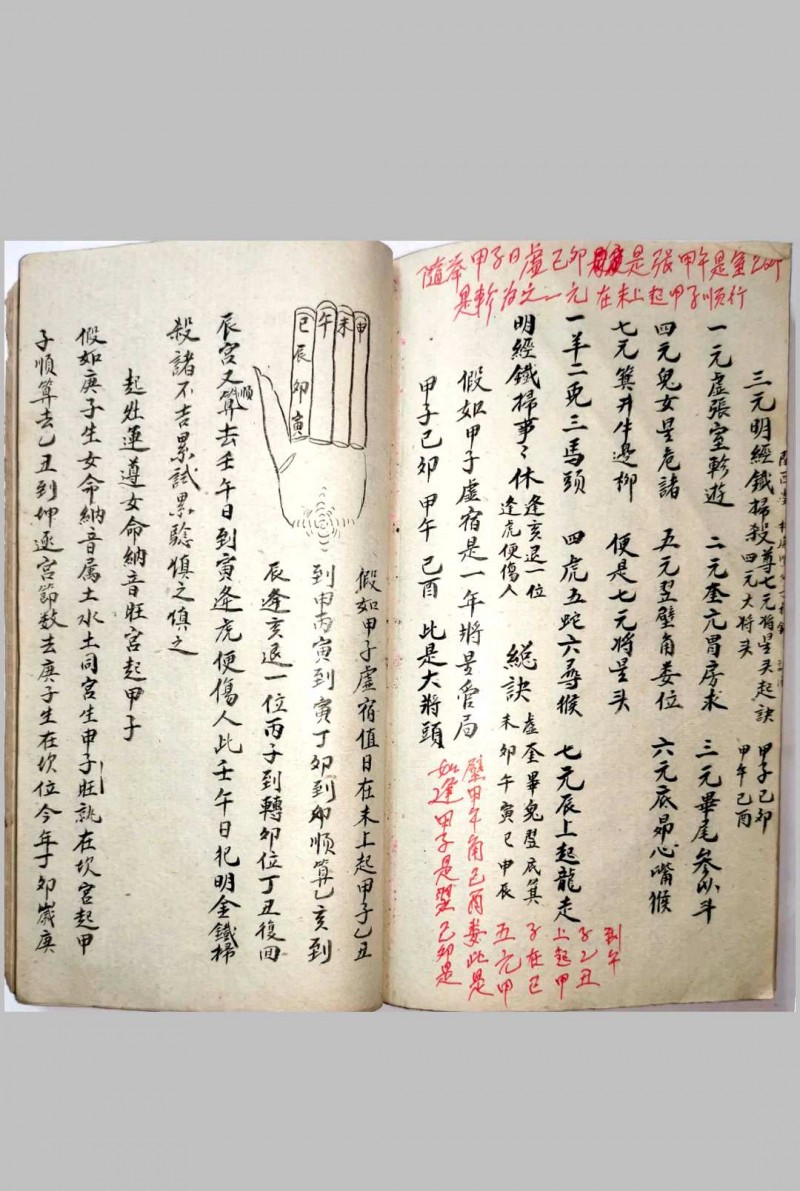 三元明經鐵掃殺尊七元將星头起訣 甲子己卯
四元大将头 甲午己酉
一元虛張室軫遊 二元奎亢胃房求 三元畢尾參以斗
四元鬼女星危諸 五元翌壁角娄位 六元底昴心嘴猴
七元箕井牛邊柳 便是七元将星头
一羊二兎三馬頭 四虎五蛇六尋猴 七元辰上起龍走
明經鐵掃事〻休 逢亥退一位 総訣 虚奎畢鬼翌底箕
逢虎便傷人 未卯午寅巳申辰
假如甲子虚宿是一年將星管局
甲子己卯 甲午 己酉 此是大將頭
隨举甲子日虚己卯是張甲午是室己酉
是軫为之一元 在未上起甲子順行
到午
子乙丑
上起甲
子在巳
五元甲
壁甲午角己酉娄此是
如逢甲子是翌己卯是
申
未
午
巳
辰
卯
寅
假如甲子虚宿值日在未上起甲子乙丑
到申丙寅到寅丁卯到卯順算乙亥到
辰逢亥退一位丙子到轉卯位丁丑復回
辰宮又順算去壬午日到寅逢虎便傷人此壬午日犯明金鐵掃
殺諸不吉累試累驗慎之慎之
起姓運遵女命納音旺宮起甲子
假如庚子生女命納音属土水土同宮生申子旺就在坎宮起甲
子順算去乙丑到坤逐宮節数去庚子生在坎位今年丁卯歲庚